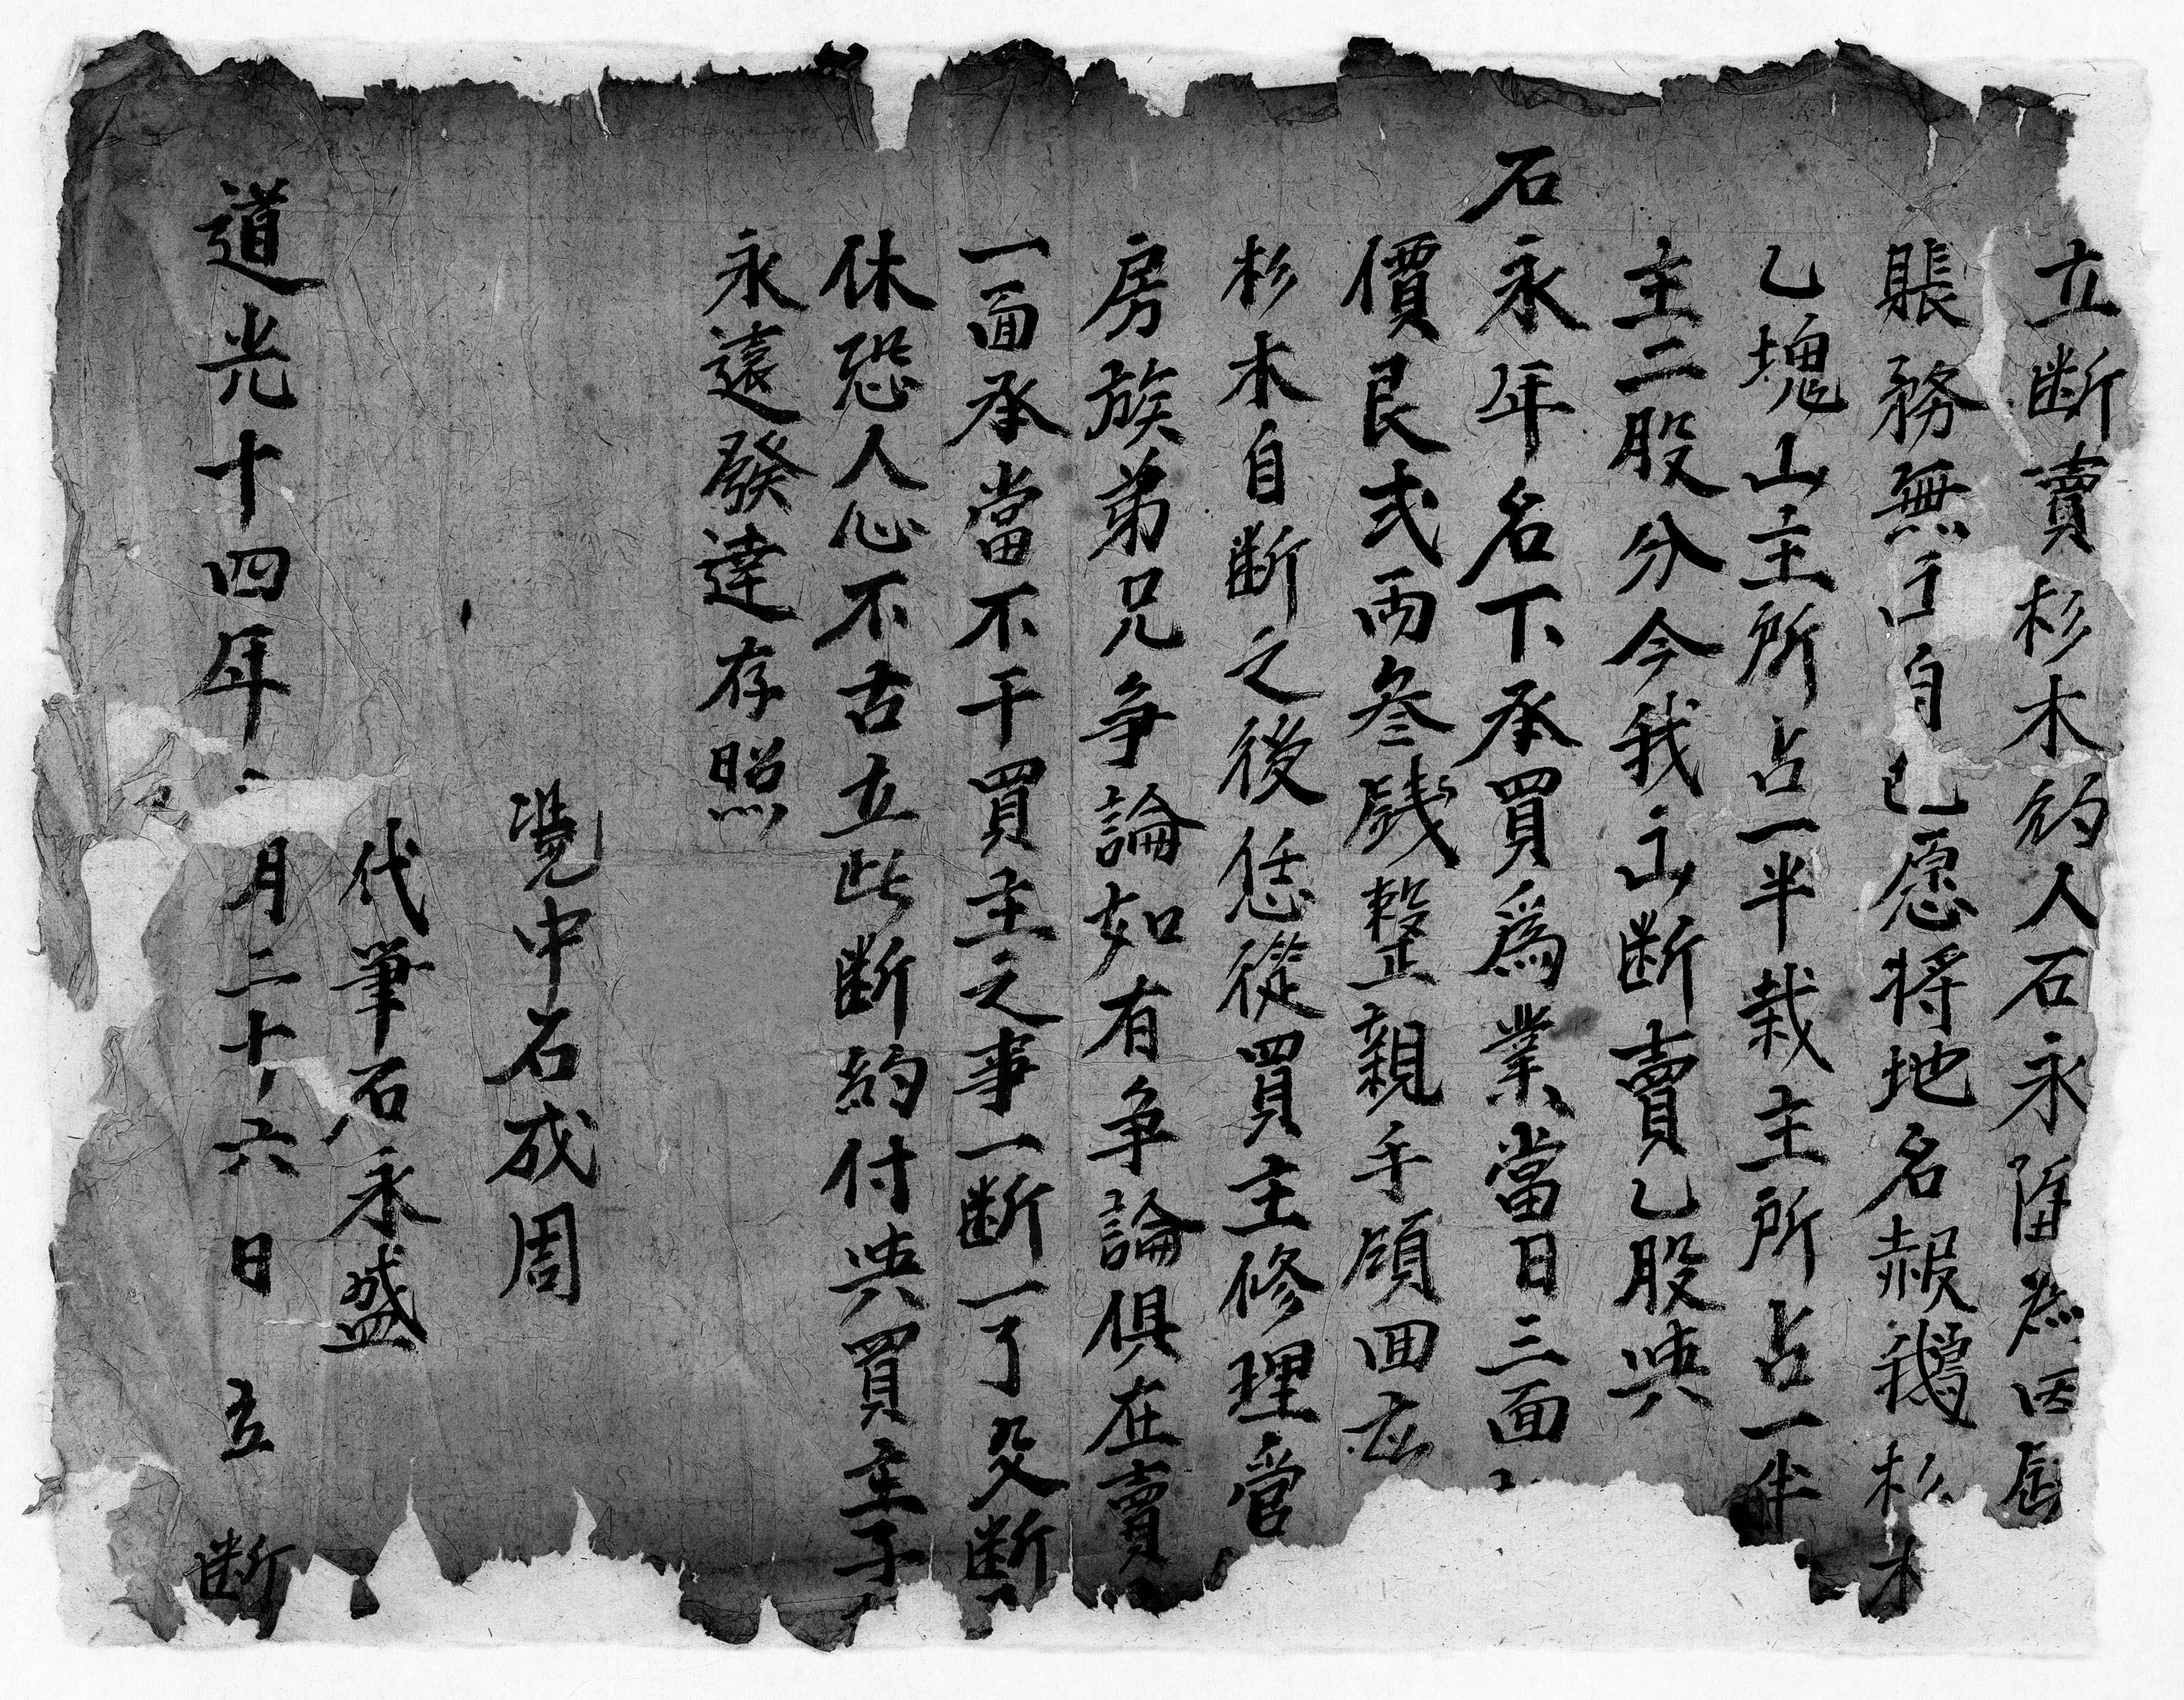 立斷賣杉木約人石永陞為因
賬務無自己愿將地名赧鵝杉木
乙塊山主所占一半栽主所占一半
主二股分今我山斷賣乙股與
石永年名下承買為業當日三面
價艮弍兩叁戔整親手領回
杉木自斷之後恁從買主修理管
房族弟兄爭論如有爭論俱在賣
一面承當不干買主之事一斷一了父斷
休恐人心不古立此斷約付與買主子
永遠發達存照
凴中石成周
代筆石永盛
道光十四年月二十六日立斷